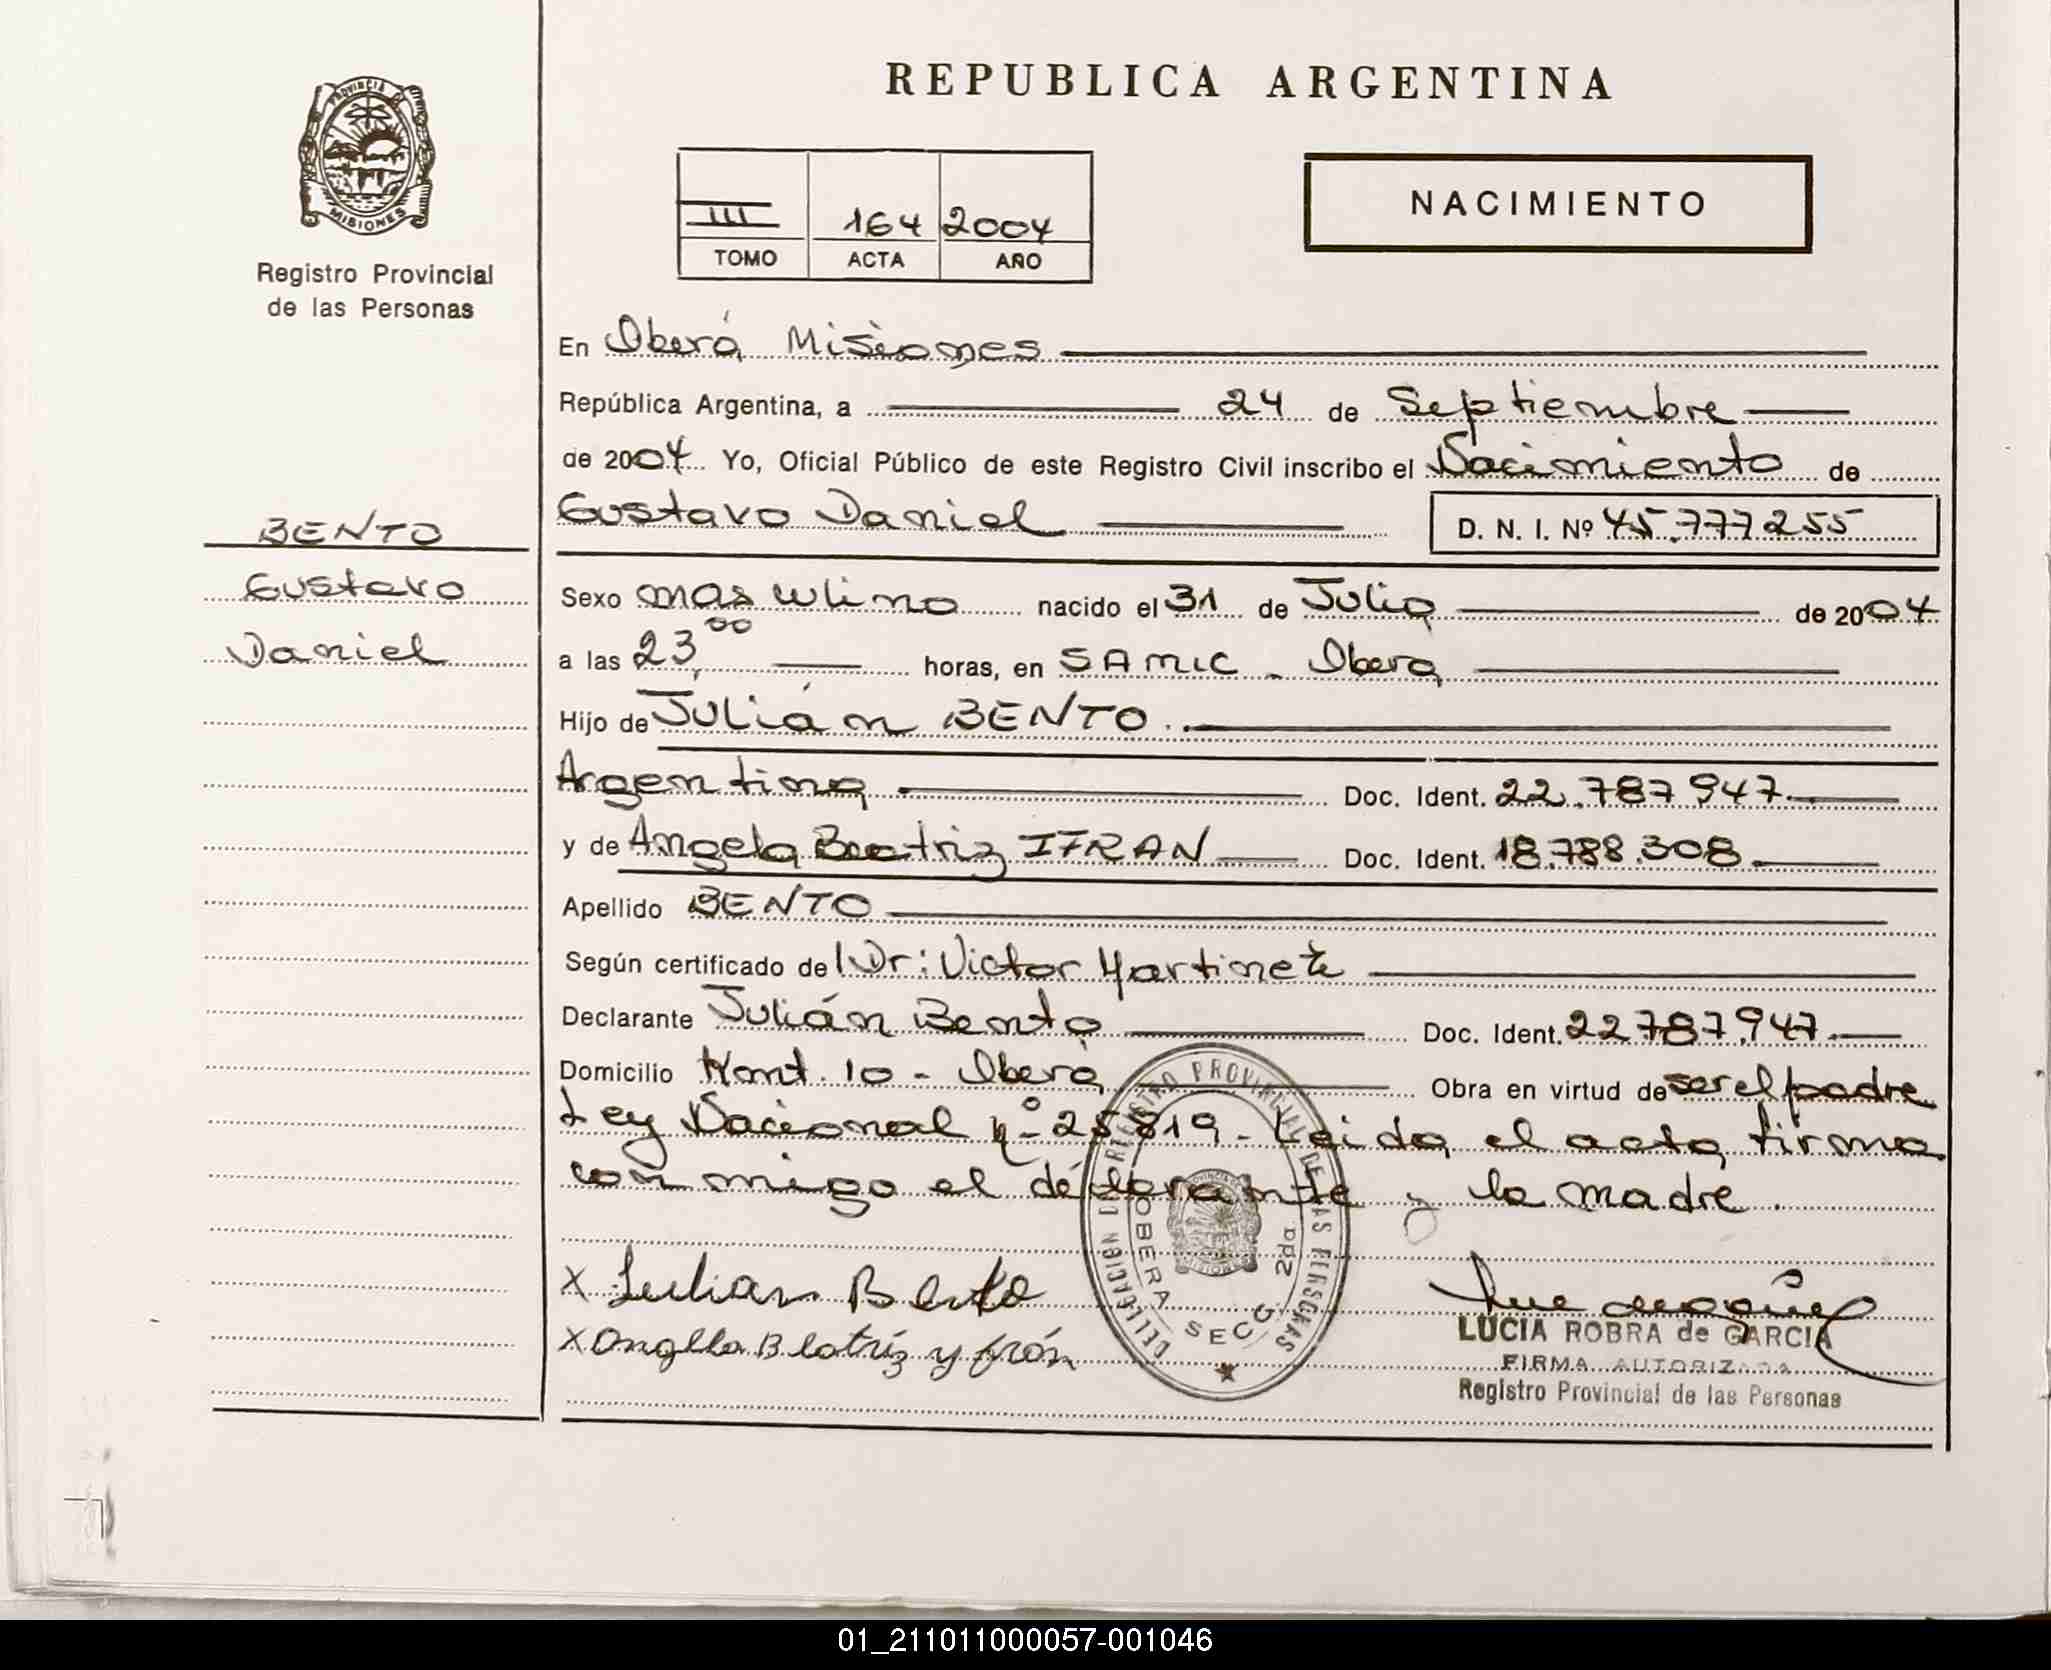 REPUBLICA ARGENTINA
PROVINCIA DE
MISIONES
Registro Provincial
de las Personas
III 164 2004
TOMO ACTA AÑO
NACIMIENTO
En Oberá Misiones
República Argentina, a 24 de Septiembre
de 2004 Yo, Oficial Público de este Registro Civil inscribo el Nacimiento de
Gustavo Daniel D. N. I. Nº 45.777255
BENTO
Gustavo
Daniel
Sexo masculino nacido el 31 de Julio de 2004
a las 23,00 horas, en SAMIC - Obera
Hijo de Julián BENTO.
Argentina Doc. Ident. 22.787947
y de Angela Beatriz IFRAN Doc. Ident. 18.788.308
Apellido BENTO
Según certificado del Dr: Victor
Declarante Julián Bento Doc. Ident. 22787.947
Domicilio 10 - Oberá Obra en virtud de ser el padre
Ley Nacional nº 25819- Leida el acta, firma
con migo el déclarante y la madre.
DELEGACION DEL REGISTRO PROVINCIAL DE LAS PERSONAS
OBERA SECC. 2da
X Julian Bento
X Angela Beatriz yfrán
LUCIA ROBRA de GARCIA
FIRMA AUTORIZADA
Registro Provincial de las Personas
01_211011000057-001046